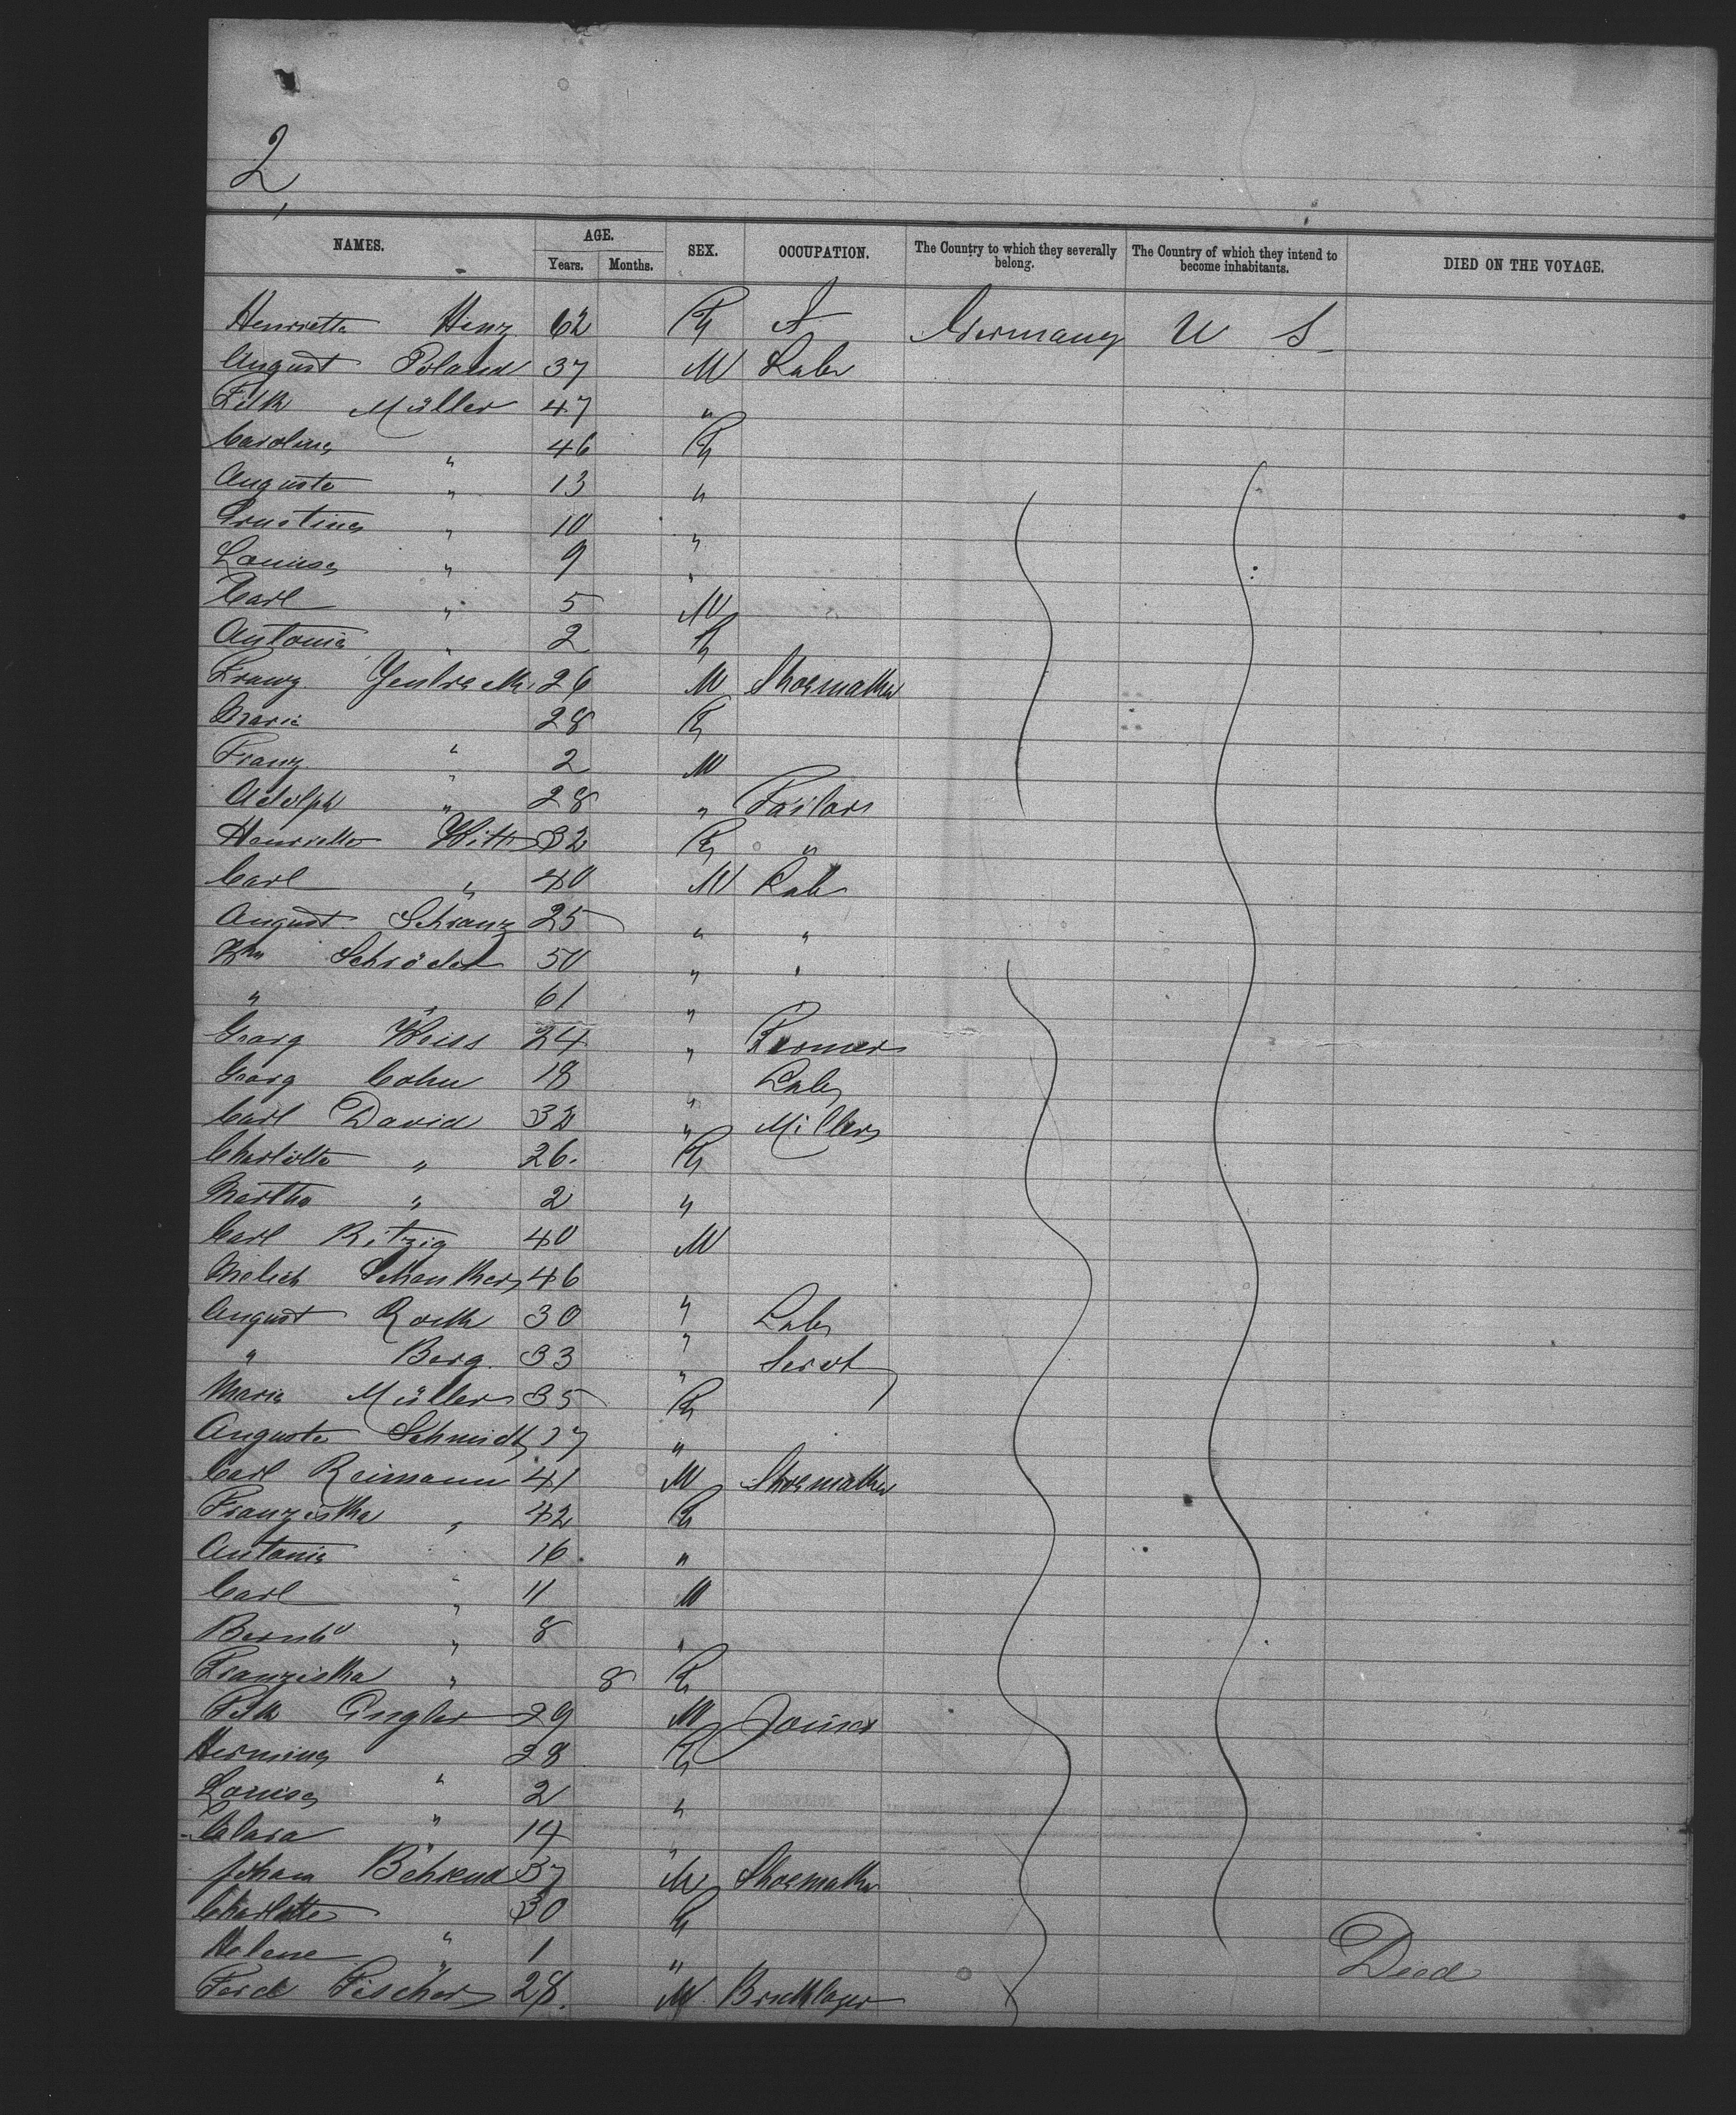 2
NAMES. AGE. SEX. OCCUPATION. The Country to which they severally belong. The Country of which they intend to become inhabitants. DIED ON THE VOYAGE.
Years. Months.
Henriette Hinz 62 F Germany U S
August Poland 37 M Labr
Müller 47 "
Caroline " 46 F
Auguste " 13 "
Ernstine " 10 "
Louise " 9 "
Carl " 5 M
Antonia " 2 F
Franz 26 M Shoemaker
Maria " 28 F
Franz " 2 M
Adolph " 28 " Tailor
Henriette Witt 32 F "
Carl " 40 M Lab
August Schranz 25 " "
Wm Schröder 50 " "
" " 61 "
Georg Weiss 24 " Farmer
Georg Cohn 18 " Labr
Carl David 32 " Miller
Charlotte " 26. F
Martha " 2 "
Carl Ritzig 40 M
Schenker 46 "
August 30 " Labr
" Berg. 33 " Servt
Maria Müller 35 F
Auguste Schmidt 27 "
Carl Reimann 41 M Shoemaker
Franziska " 42 F
Antonia " 16 "
Carl " 11 M
Bernhd " 8 "
Franziska " 8 F
Engler 29 M Joiner
Hermine " 28 F
Louise " 2 "
Clara " 14 "
Johan Behrend 37 M Shoemaker
Charlotte " 30 F
Helene " 1 " Died
Ferd Fischer 28. M Bricklayer